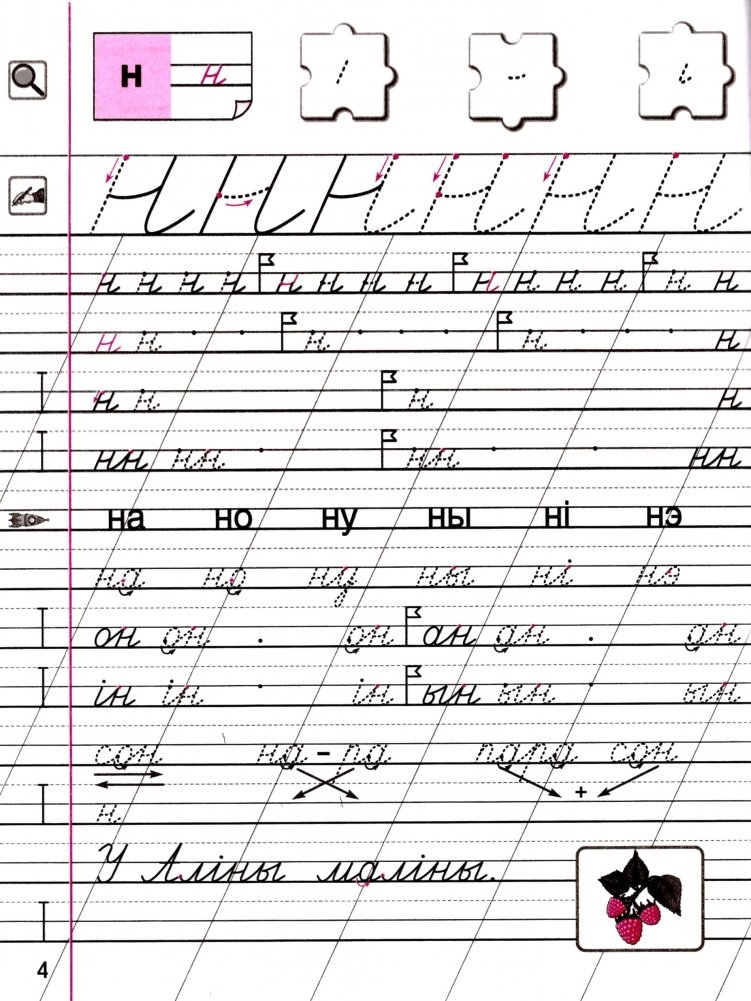 н н
н н н н н н н н н н н н н н
н н н н н
н н н н
нн нн нн нн
на но ну ны ні нэ
на но ну ны ні нэ
он он он ан ан ан
ін ін ін ын ын ын
сон на – ра пара сон
+
н
У Аліны маліны.
4